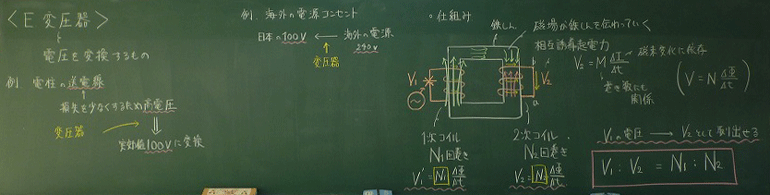 <E 変圧器>
電圧を変換するもの
例 電柱の送電線
損失を少なくするため高電圧
変圧器
実効値100Vに変換
例. 海外の電源コンセント
日本の100V ← 海外の電源
290V
変圧器
○仕組み
鉄しん
V₁
V₂
a
1次コイル
N₁回巻き
V₁ = N₁ ΔΦ/Δt
2次コイル
N₂回巻き
V₂ = N₂ ΔΦ/Δt
磁場が鉄しんを伝わっていく
相互誘導起電力
V₂ = M ΔI/Δt
磁束変化に依存
巻き数にも
関係
(V = N ΔΦ/Δt)
V₁の電圧 → V₂として取出せる
V₁ : V₂ = N₁ : N₂